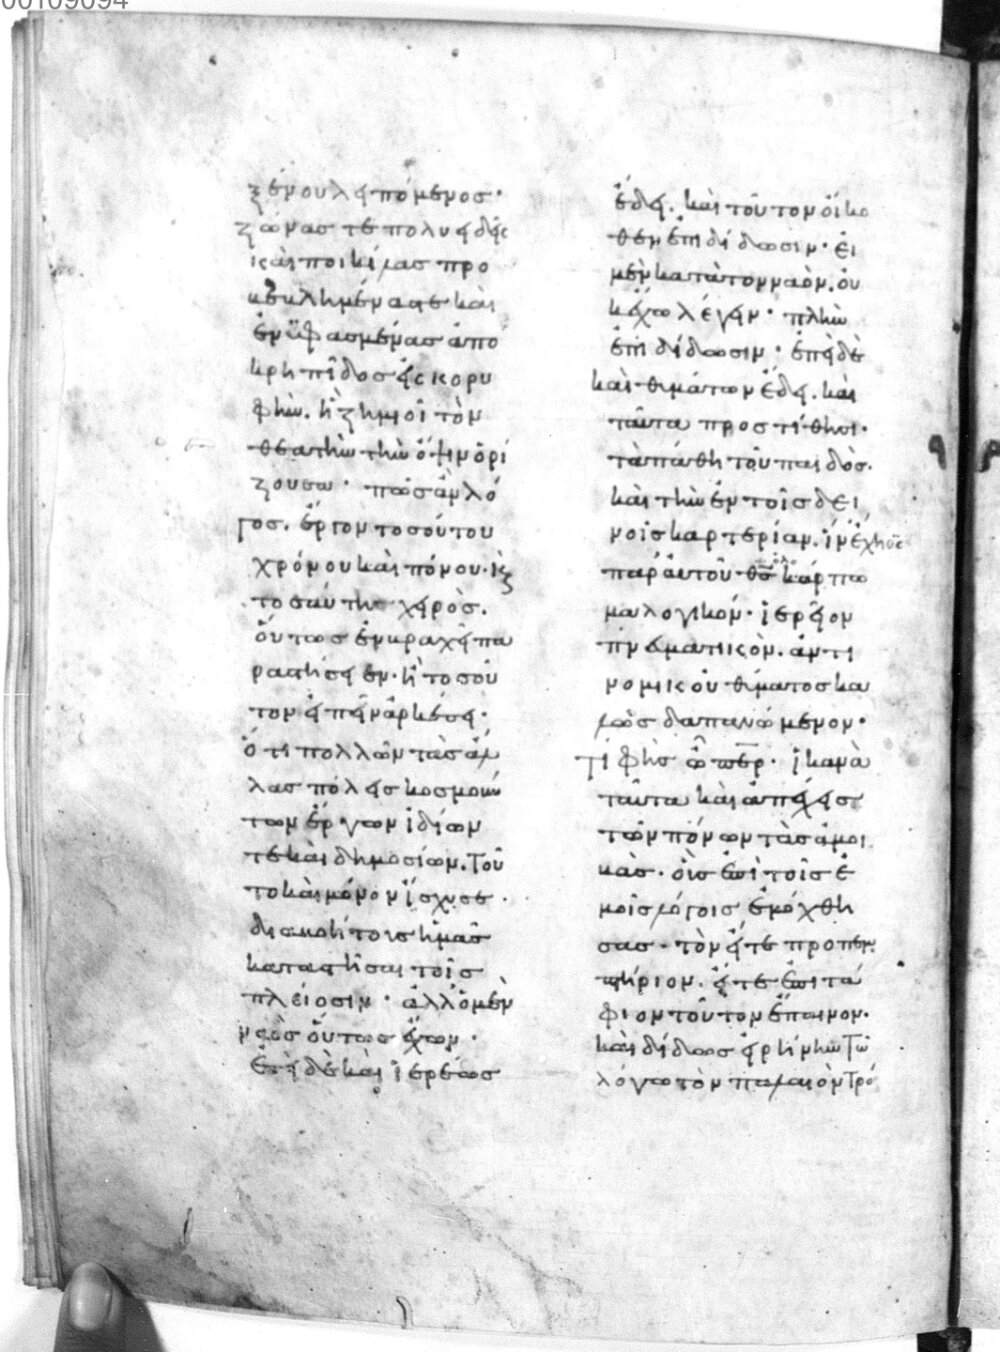 00109094
ξένου λεπόμενος·
ζώνας τε πολυειδεῖς
καὶ ποικίλας προ
κεκλημένας τε καὶ
ἐνϋφασμένας ἀπὸ
κρηπῖδος εἰς κορυ
φὴν. ἢ ζημιοῖ τὸν
θεατὴν τὴν ὄψιν ὁρί
ζουσαν· πῶς ἂν λό
γος. ἔργον τοσούτου
χρόνου καὶ πόνου· καὶ
τοσαύτης χειρὸς.
οὕτως ἐν βραχεῖ πα
ραστήσειεν· ἢ τοσοῦ
τον εἰπεῖν ἀρκέσει·
ὅτι πολλῶν τὰς ἄλ
λας πόλεις κοσμούν
των ἔργων ἰδίων
τε καὶ δημοσίων. τοῦ
το καὶ μόνον ἴσχυσε
διαβοήτους ἡμᾶς
καταστῆσαι τοῖς
πλείοσιν· ἀλλ' ὁ μὲν
νεὼς οὕτως ἔχων·
ἐπεὶ δὲ καὶ ἱερέως
ἔδει. καὶ τοῦτον οἴκο
θεν ἐπιδίδωσιν· εἰ
μὲν κατὰ τὸν ναὸν. οὐ
κ ἔχω λέγειν· πλὴν
ἐπιδίδωσιν· ἐπεὶ δὲ
καὶ θυμάτων ἔδει. καὶ
ταῦτα προστίθησι·
τὰ πάθη τοῦ παιδὸς.
καὶ τὴν ἐν τοῖς δει
νοῖς καρτερίαν. ἵν' ἔχῃς
παρ' αὐτοῦ θς κάρπω
μα λογικόν· ἱερεῖον
πνευματικὸν. ἀντὶ
νομικοῦ θύματος κα
λῶς δαπανώμενον·
τί φὴς ὦ περ· ἱκανὰ
ταῦτα καὶ ἀπέχεις
τῶν πόνων τὰς ἀμοι
βάς. οἷς ἐπὶ τοῖς ἐ
μοῖς λόγοις ἐμόχθη
σας· τὸν εἴτε προπεμ
πτήριον. εἴτε ἐπιτά
φιον τοῦτον ἔπαινον·
καὶ δίδως εἰρήνην τῶ
λόγω τὸν παλαιὸν τρό